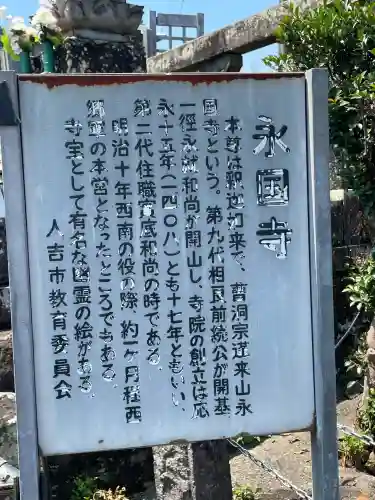 永国寺
本尊は釈迦如来で、曹洞宗蓬来山永
国寺という。第九代相良前続公が開基
一径永就和尚が開山し、寺院の創立は応
永十五年(一四〇八)とも十七年ともいい、
第二代住職実底和尚の時である。
明治十年西南の役の際、約一ヶ月程西
郷軍の本営となったところでもある。
寺宝として有名な幽霊の絵がある。
人吉市教育委員会